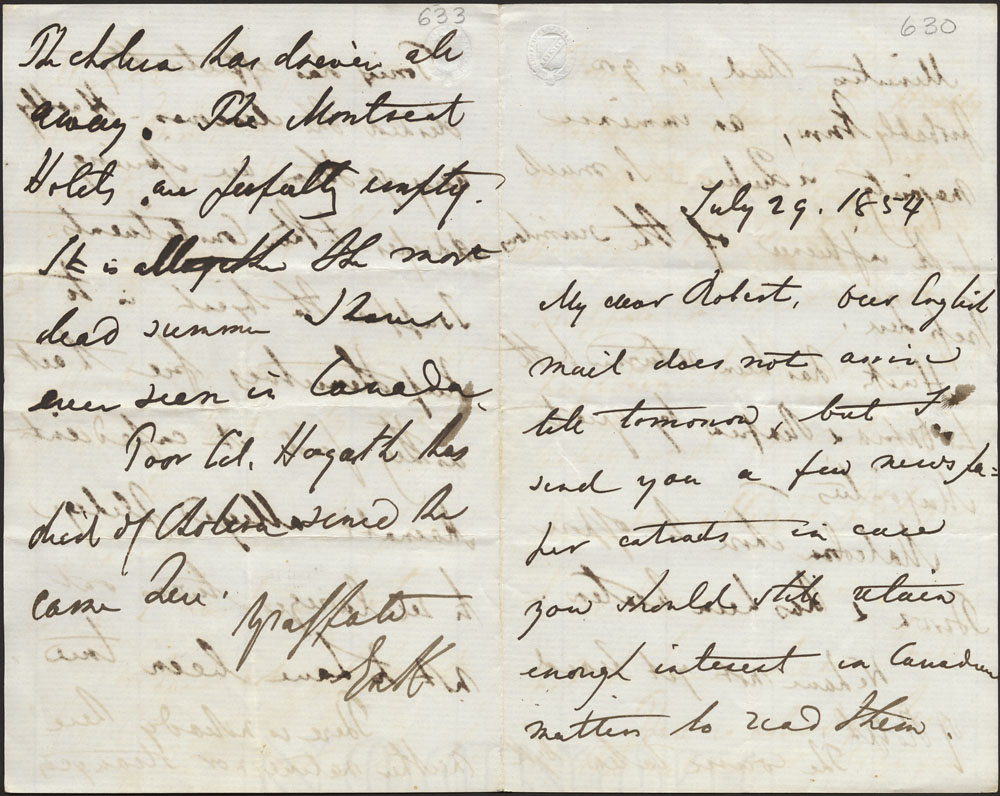 630
July 29. 1854
My dear Robert, Our English
mail does not arrive
till tomorrow, but I
send you a few newspa=
per extracts in case
you should still retain
enough interest in Canadian
matters to read them.
633
The cholera has driven all
away. The Montreal
Hotels are perfectly empty.
It is altogether the most
dead summer I have
ever seen in Canada.
Poor Col. Hogarth has
died of Cholera since he
came here.